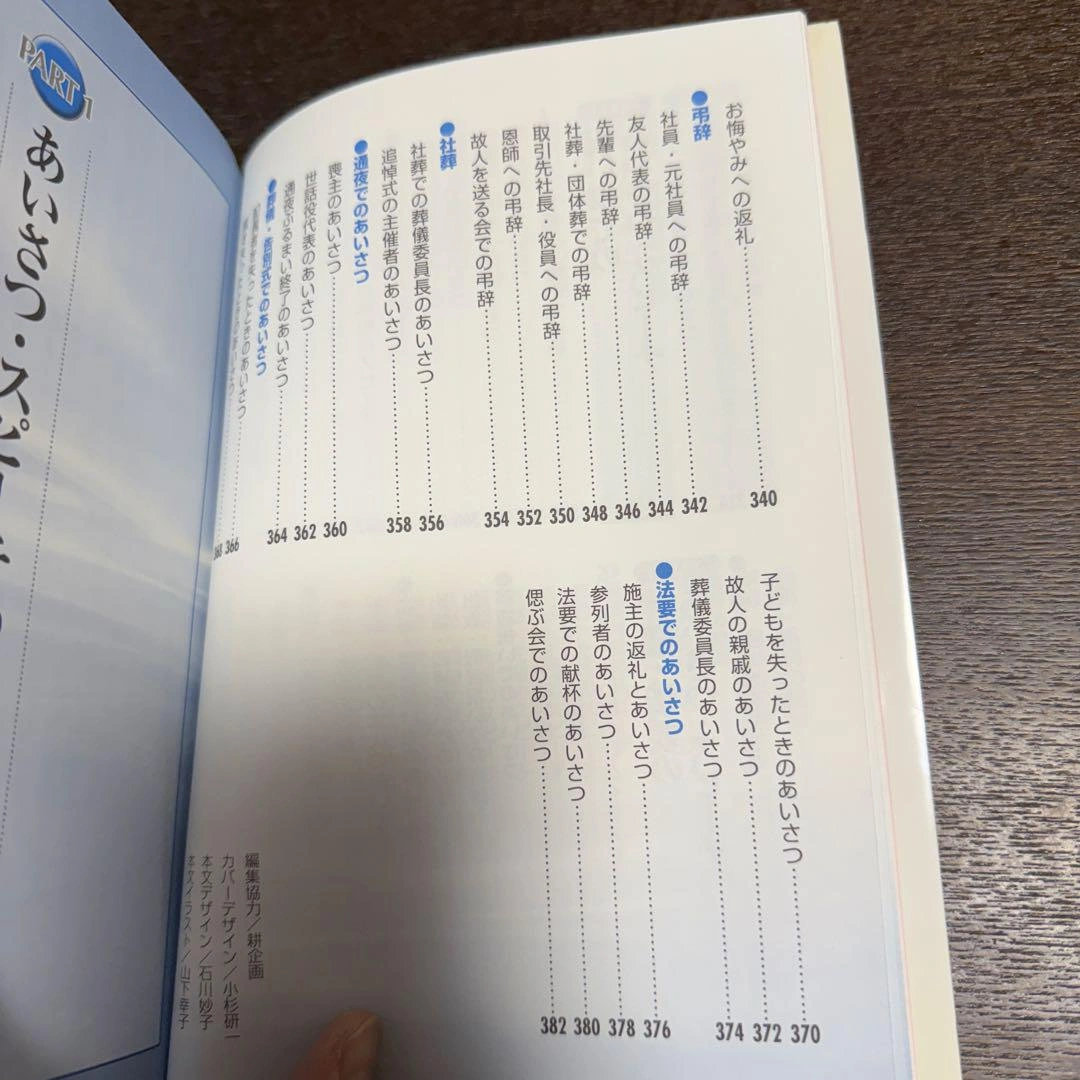 お悔やみへの返礼 340
●弔辞
社員・元社員への弔辞 342
友人代表の弔辞 344
先輩への弔辞 346
社葬・団体葬での弔辞 348
取引先社長・役員への弔辞 350
恩師への弔辞 352
故人を送る会での弔辞 354
●社葬
社葬での葬儀委員長のあいさつ 356
追悼式の主催者のあいさつ 358
●通夜でのあいさつ
喪主のあいさつ 360
世話役代表のあいさつ 362
通夜ぶるまい終了のあいさつ 364
●葬儀・告別式でのあいさつ
を失ったときのあいさつ 366
368
子どもを失ったときのあいさつ 370
故人の親戚のあいさつ 372
葬儀委員長のあいさつ 374
●法要でのあいさつ
施主の返礼とあいさつ 376
参列者のあいさつ 378
法要での献杯のあいさつ 380
偲ぶ会でのあいさつ 382
編集協力／耕企画
カバーデザイン／小杉研一
本文デザイン／石川妙子
本文イラスト／山下幸子
PART 1
あいさつ・スピーチ